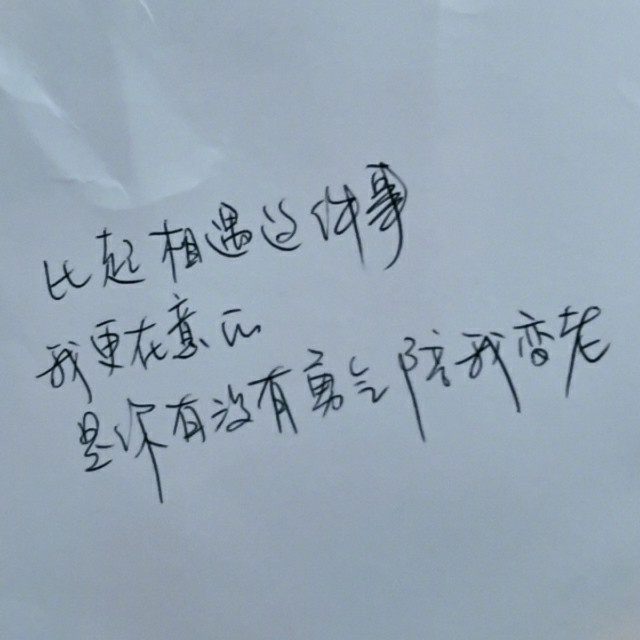 比起相遇这件事
我更在意的
是你有没有勇气陪我变老